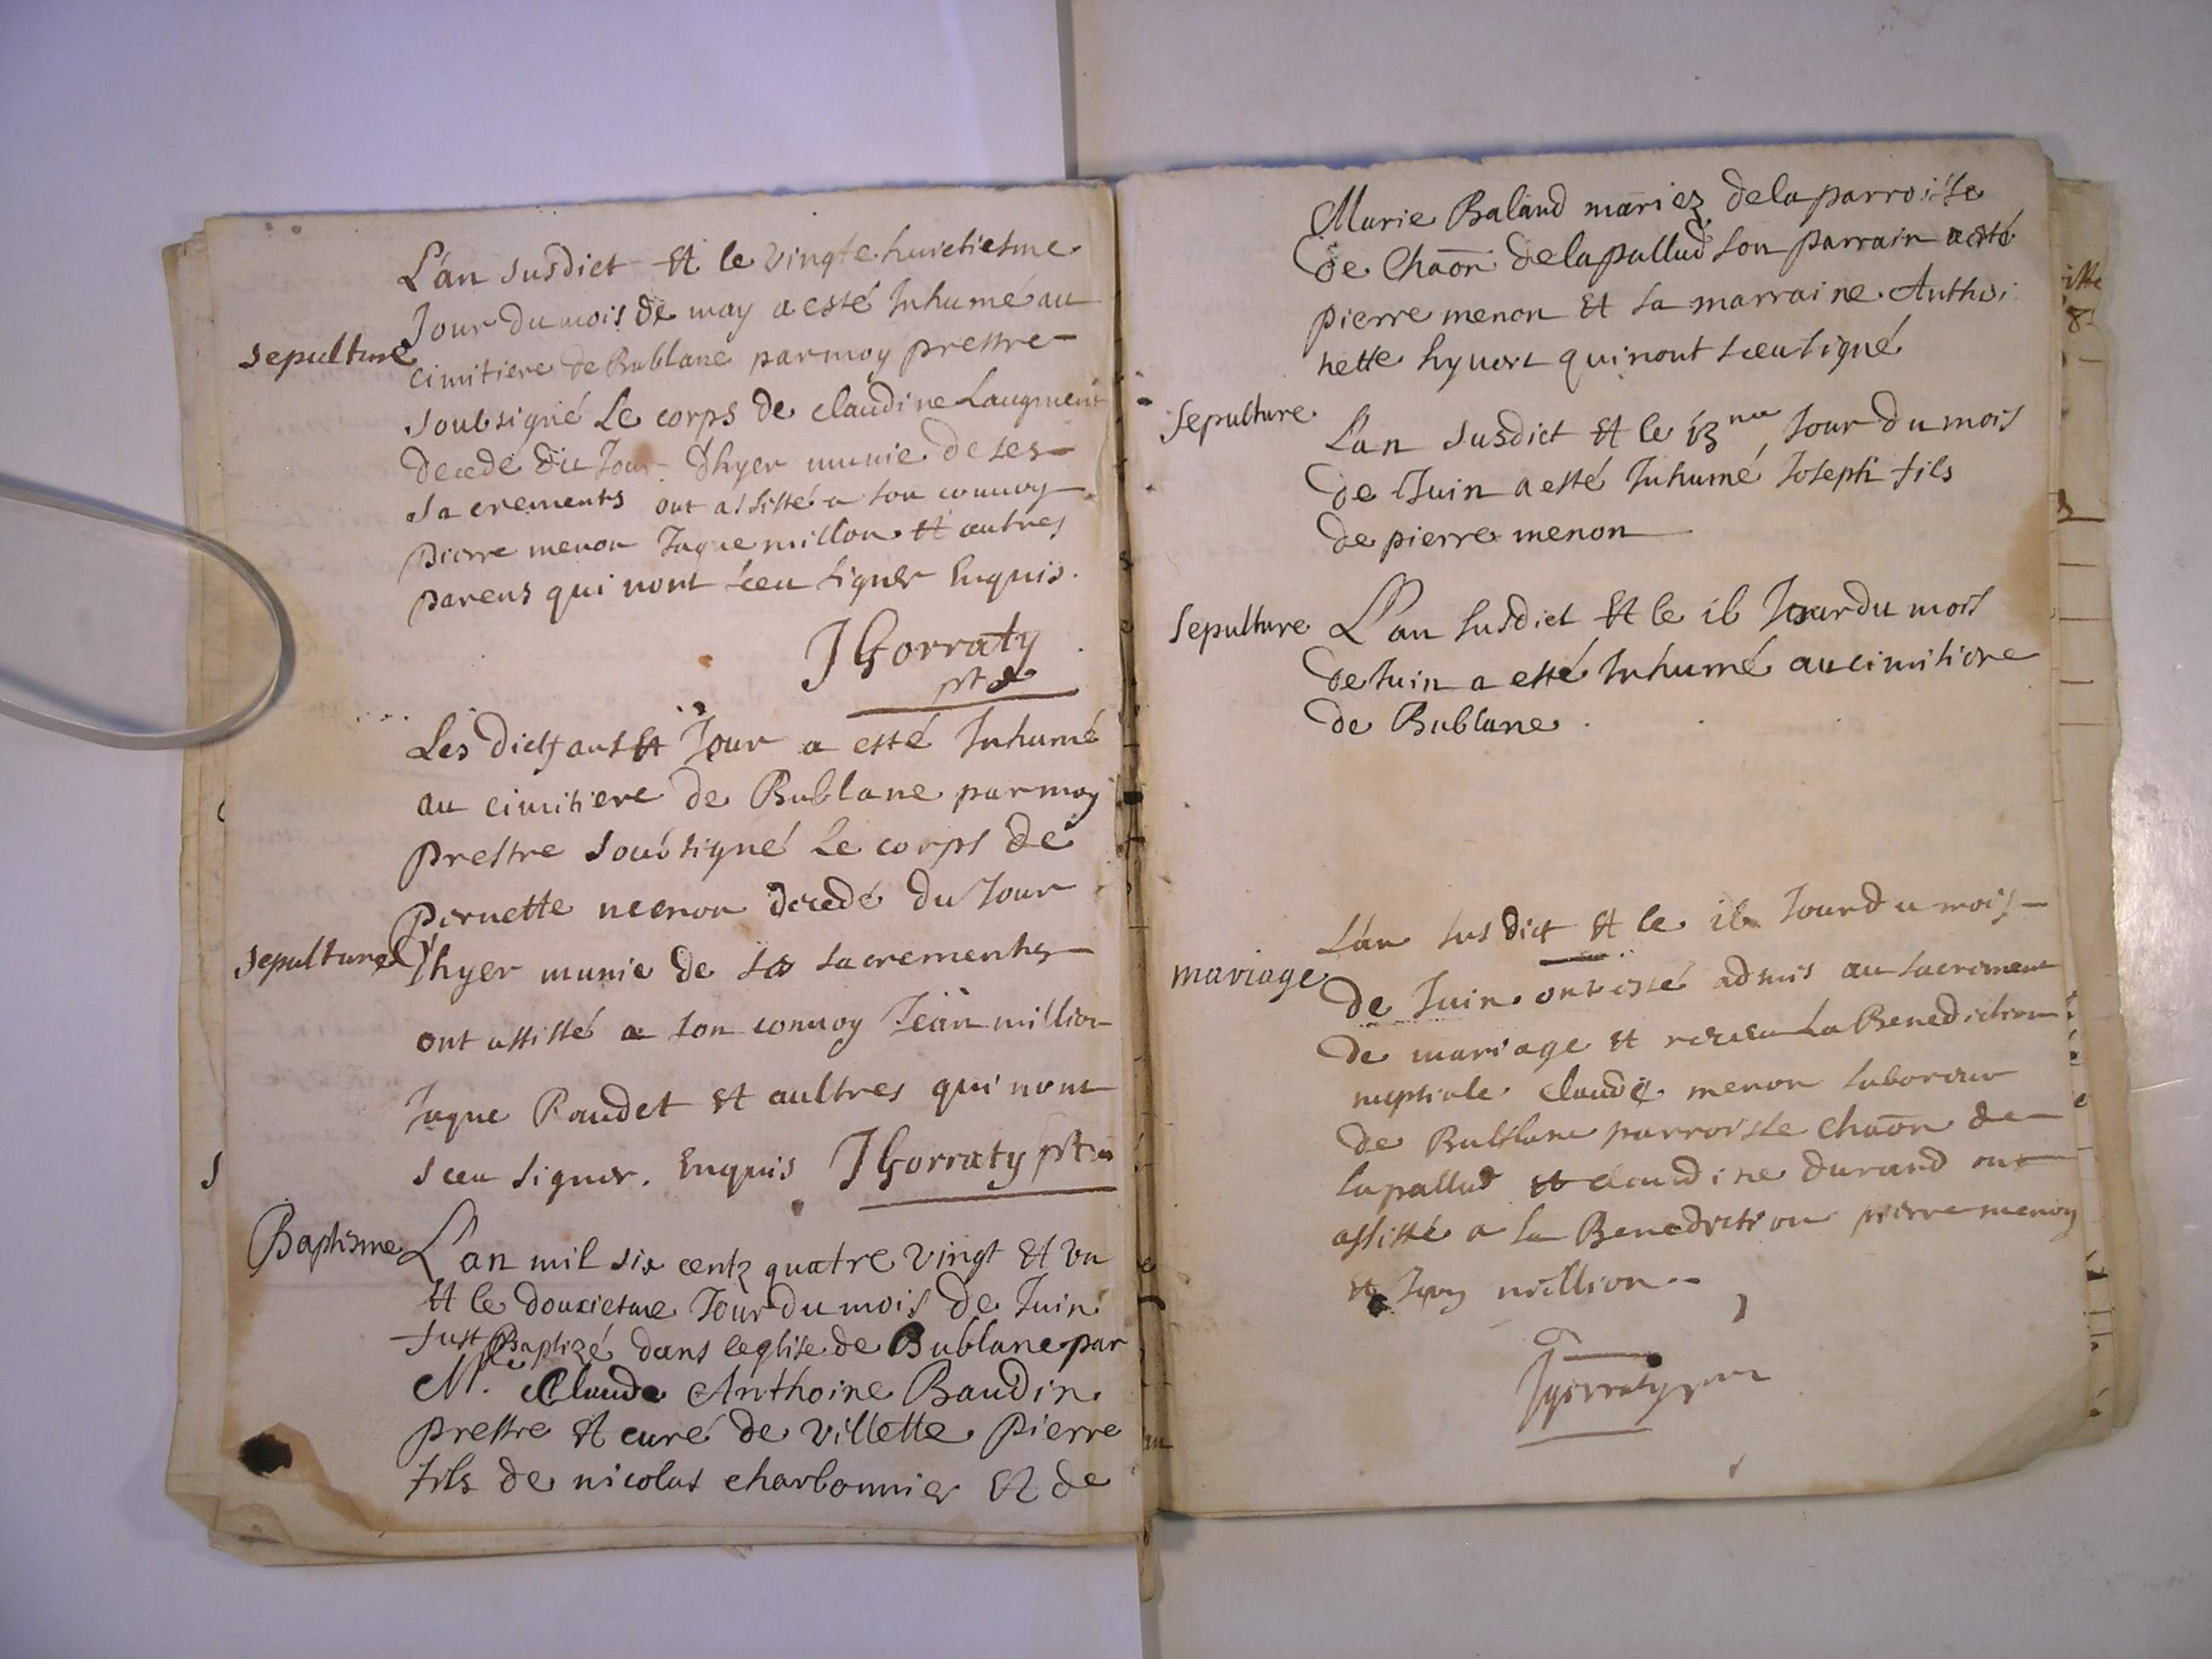 L'an susdict et le vingte huictiesme
Jour du mois de may a esté Inhumé au
sepulture
cimitiere de Bublane par moy prestre
soubsigné Le corps de claudine Laugment
decede du Jour d'hyer munie de ses
sacrements ont assisté a son convoy
pierre menon Jaque millon et autres
parens qui nont sceu signer Enquis.
J Gorraty
ptre
Les dicts ans et Jour a esté Inhumé
au cimitiere de Bublane par moy
prestre soubsigné Le corps de
pernette menon decedé du Jour
sepulture
d'hyer munie de ses sacrements
ont assisté a son convoy Jean million
Jaque Raudet et aultres qui nont
sceu signer. Enquis J Gorraty ptre
Baptisme
L'an mil six centz quatre vingt et un
et le douxiesme Jour du mois de Juin
fust Baptizé dans leglise de Bublane par
Mre Claude Anthoine Baudin
prestre et curé de villette pierre
fils de nicolas charbonnier et de
Marie Baland mariez de la parroisse
de Chaon de la pallud son parrain a esté
pierre menon et sa marraine Anthoi
nette hyvert qui nont sceu signé
sepulture
L'an susdict et le 13me Jour du mois
de Juin a esté Inhumé Joseph fils
de pierre menon
sepulture
L'an susdict et le 16 Jour du mois
de Juin a esté Inhumé au cimitiere
de Bublane.
L'an susdict et le 16 Jour du mois
mariage
de Juin ont esté admis au sacrement
de mariage et receu La Benediction
nuptiale claude menon laboreur
de Bublane parroisse chaon de
lapallud et claudine durand ont
assisté a la Benediction pierre menon
et million
J Gorraty ptre